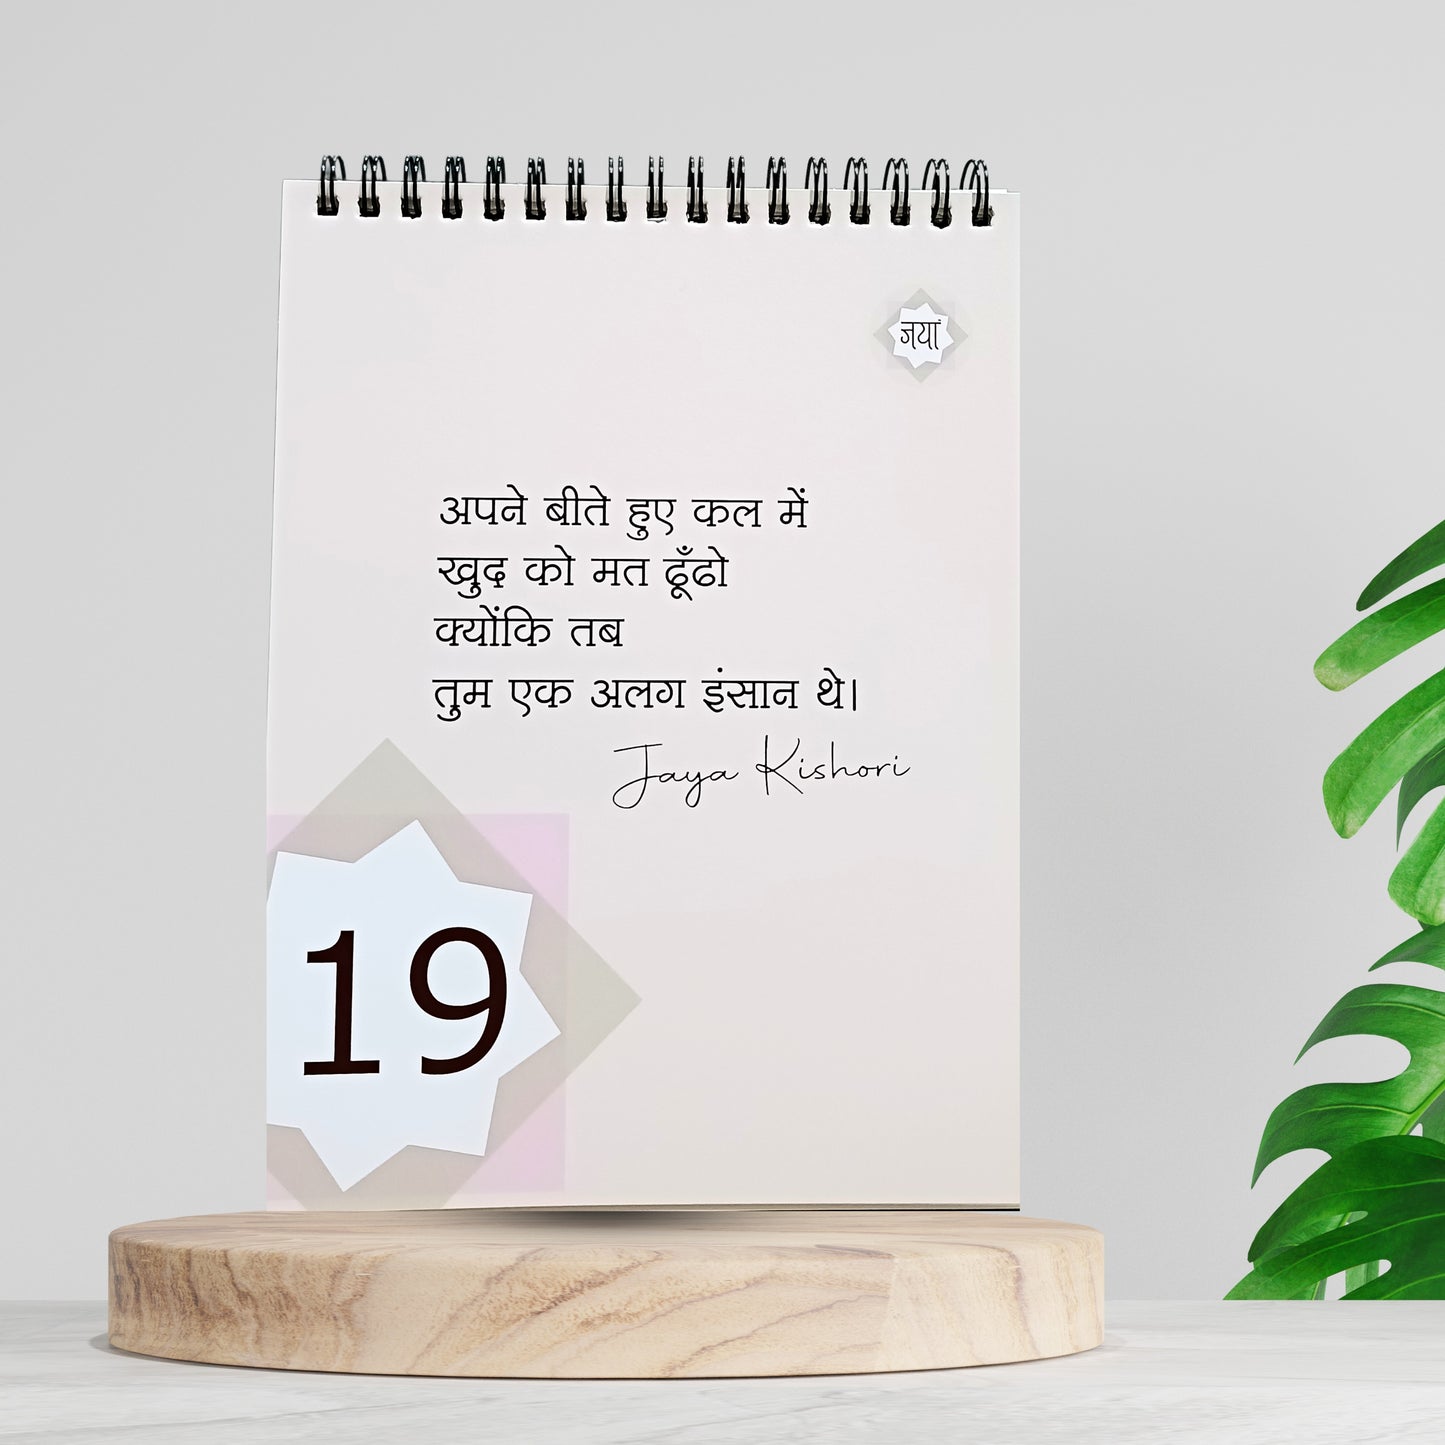 जयां
अपने बीते हुए कल में
खुद को मत ढूँढो
क्योंकि तब
तुम एक अलग इंसान थे।
Jaya Kishori
19